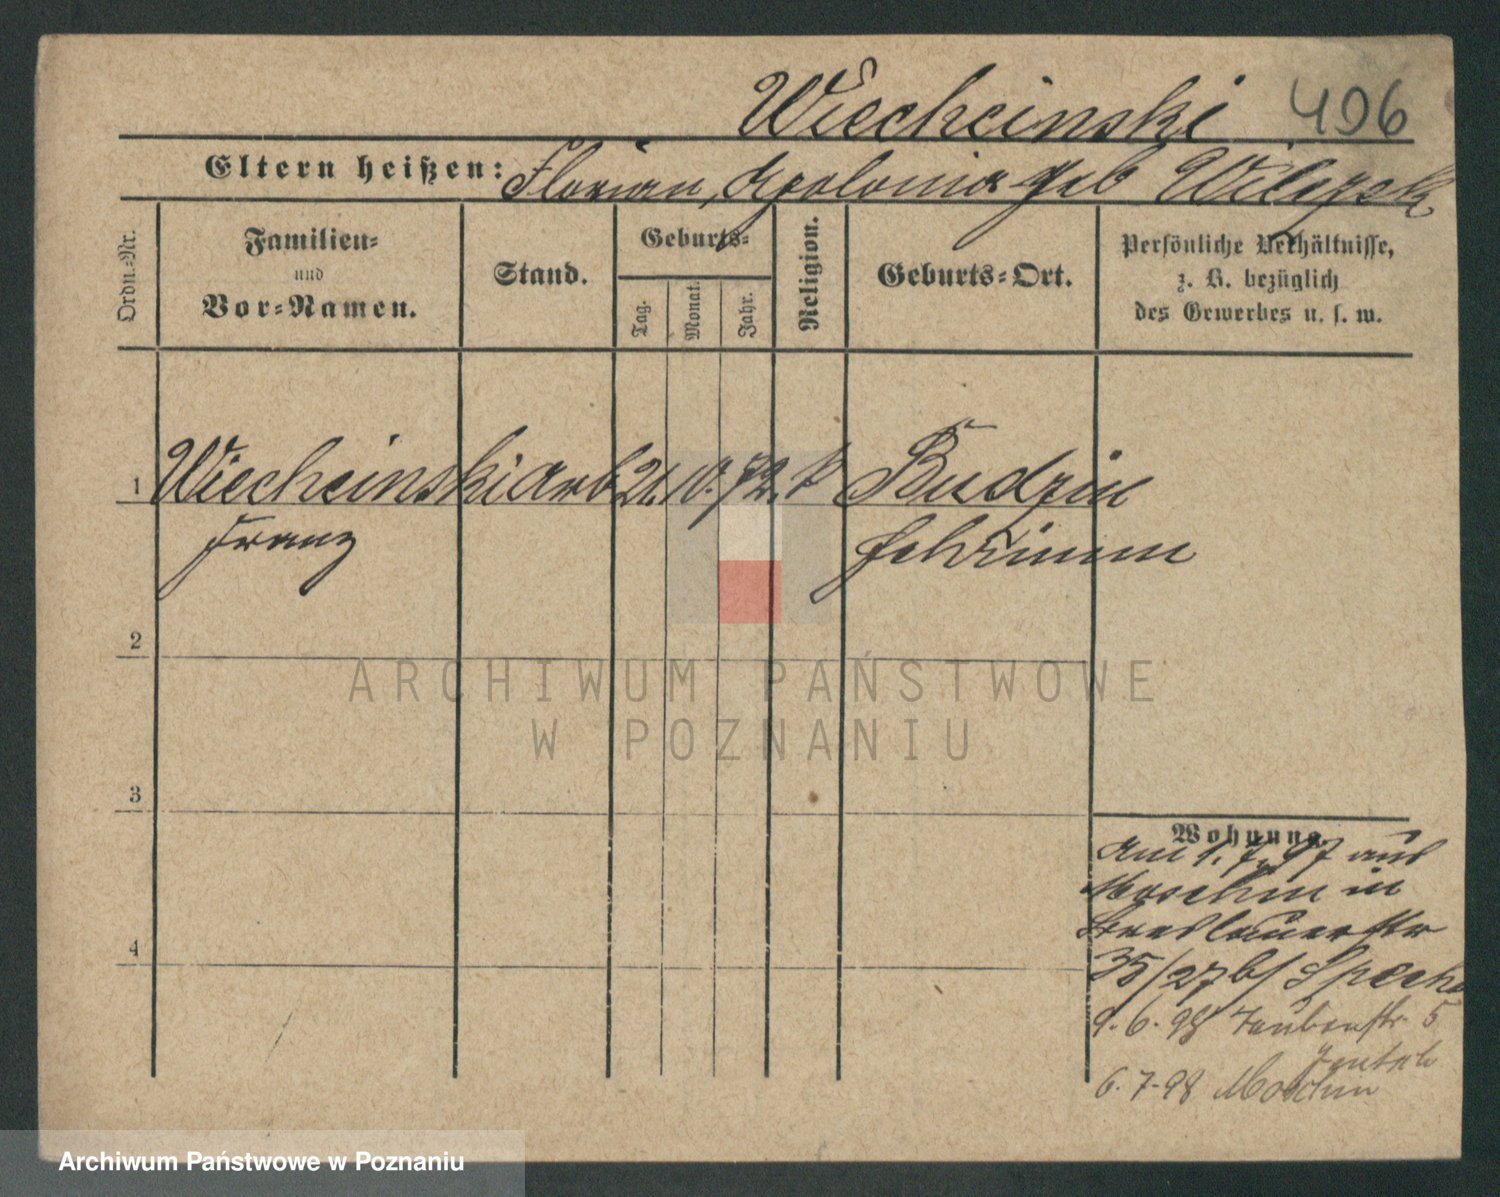 Wiechcinski 496
Eltern heißen: Florian, Apolonia geb
Ordn.-Nr.
Familien-
und
Vor-Namen.
Stand.
Geburts-
Tag.
Monat.
Jahr.
Religion.
Geburts-Ort.
Persönliche Verhältnisse,
z. B. bezüglich
des Gewerbes u. s. w.
1 Wiechcinski Arb 21. 10. 72. k Budzin
Franz Schrimm
2
3
4
Wohnung.
Am 1. 7. 97 aus
Moschin in
Breslauerstr
35/27 b/
9. 6. 98 Taubenstr. 5
6. 7. 98 Moschin
ARCHIWUM PAŃSTWOWE
W POZNANIU
Archiwum Państwowe w Poznaniu